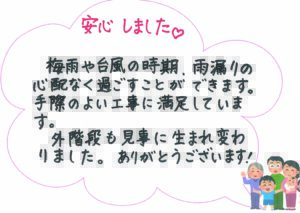 安心しました♡
梅雨や台風の時期、雨漏りの
心配なく過ごすことができます。
手際のよい工事に満足していま
す。
外階段も見事に生まれ変わ
りました。ありがとうございます!